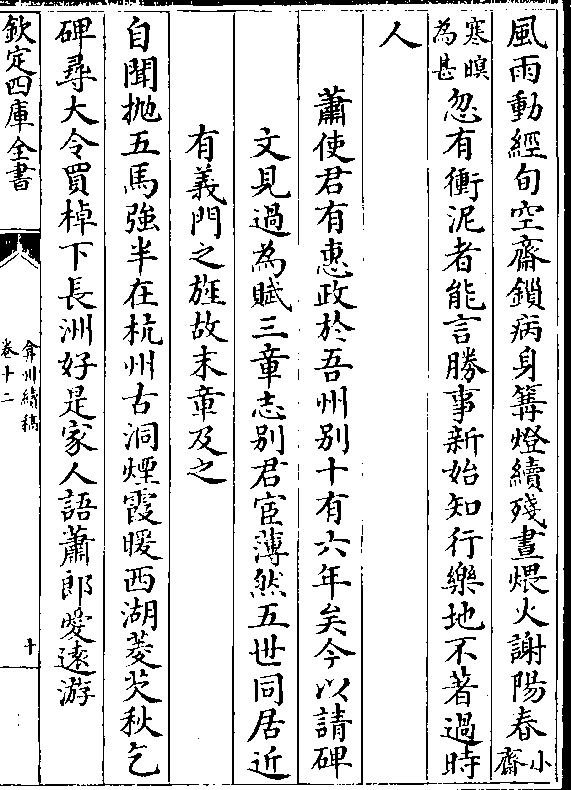 風雨動經旬空齋鎖病身篝燈續殘晝煨火謝陽春小齋
寒暝為甚忽有衝泥者能言勝事新始知行樂地不著過時
人
蕭使君有惠政於吾州别十有六年矣今以請碑
文見過為賦三章志别君宦薄然五世同居近
有義門之旌故末章及之
自聞抛五馬強半在杭州古洞煙霞暖西湖菱芡秋乞
碑尋大令買棹下長洲好是家人語蕭郎愛遠游
欽定四庫全書
弇州續稿
卷十二
十